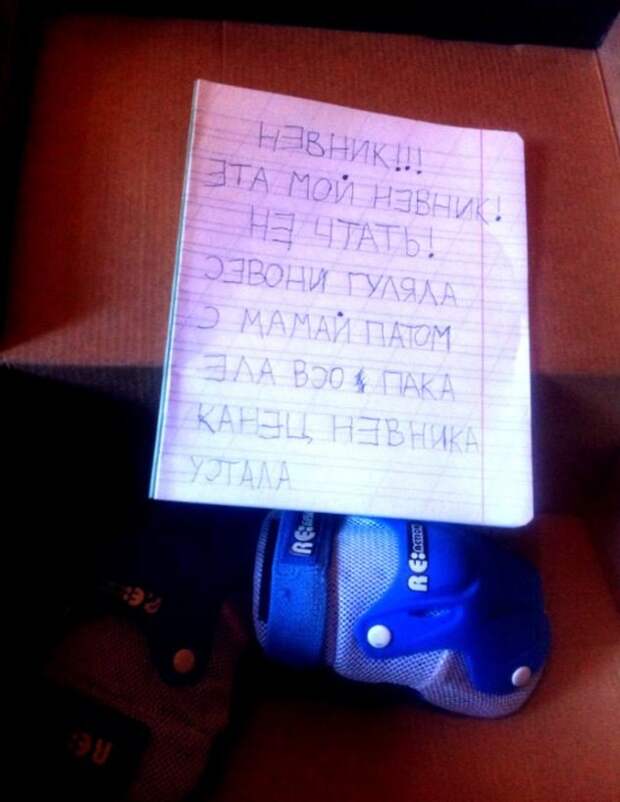 НЭВНИК!!!
ЭТА МОЙ НЭВНИК!
НЭ ЧТАТЬ!
СЭВОНИ ГУЛЯЛА
С МАМАЙ ПАТОМ
ЭЛА ВСО ПАКА
КАНЭЦ НЭВНИКА
УСТАЛА
RE:ACTION
RE:ACTION
RE:
RE: